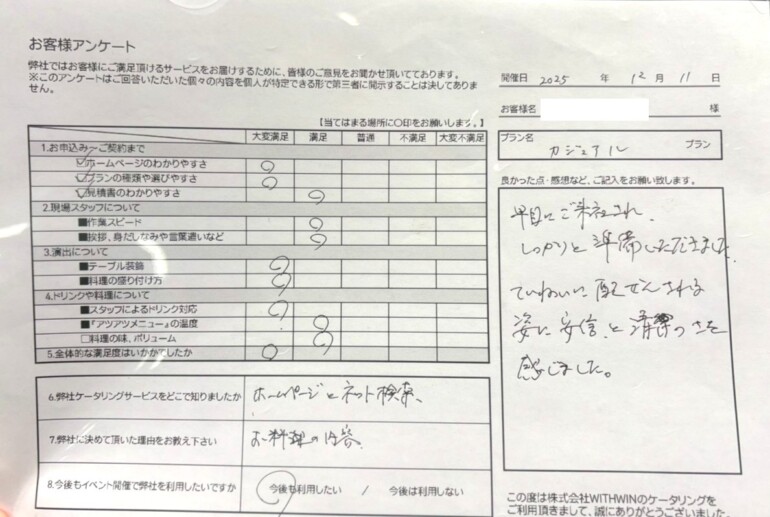 お客様アンケート
弊社ではお客様にご満足頂けるサービスをお届けするために、皆様のご意見をお聞かせ頂いております。
※このアンケートはご回答いただいた個々の内容を個人が特定できる形で第三者に開示することは決してありません。
【当てはまる場所に〇印をお願いします。】
大変満足 満足 普通 不満足 大変不満足
1.お申込み～ご契約まで
ホームページのわかりやすさ 〇
プランの種類や選びやすさ 〇
見積書のわかりやすさ 〇
2.現場スタッフについて
■作業スピード 〇
■挨拶、身だしなみや言葉遣いなど 〇
3.演出について
■テーブル装飾 〇
■料理の盛り付け方 〇
4.ドリンクや料理について
■スタッフによるドリンク対応 〇
■『アツアツメニュー』の温度 〇
□料理の味、ボリューム 〇
5.全体的な満足度はいかがでしたか 〇
6.弊社ケータリングサービスをどこで知りましたか ホームページとネット検索、
7.弊社に決めて頂いた理由をお教え下さい お料理の内容
8.今後もイベント開催で弊社を利用したいですか 今後も利用したい / 今後は利用しない
開催日 2025 年 12 月 11 日
お客様名 様
プラン名 カジュアル プラン
良かった点・感想など、ご記入をお願い致します。
早目にご来社され、
しっかりと準備いただきました。
ていねいに配せんされる
姿に安信、と清潔っさを
感じました。
この度は株式会社WITHWINのケータリングを
ご利用頂きまして、誠にありがとうございました。